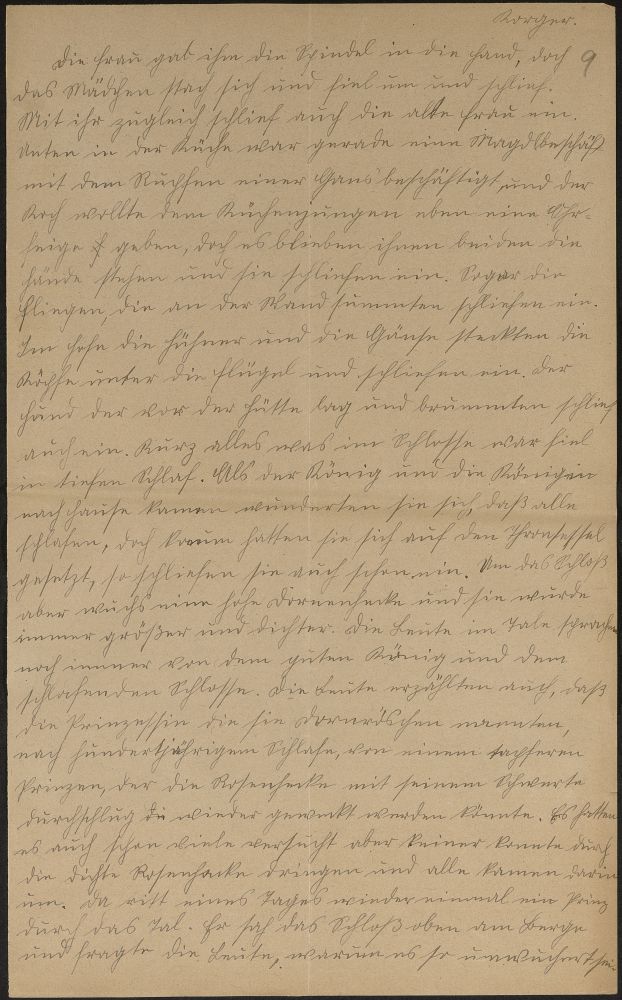 Korger.
9
Die Frau gab ihm die Spindel in die Hand, doch
das Mädchen stach sich und fiel um und schlief.
Mit ihr zugleich schlief auch die alte Frau ein.
Unten in der Küche war gerade eine Magd beschäf
mit dem Rupfen einer Gans beschäftigt, und der
Koch wollte dem Küchenjungen eben eine Ohr-
feige geben, doch es blieben ihnen beiden die
Hände stehen und sie schliefen ein. Sogar die
Fliegen, die an der Wand summten schliefen ein.
Im Hofe die Hühner und die Gänse steckten die
Köpfe unter die Flügel und schliefen ein. Der
Hund der vor der Hütte lag und brummten schlief
auch ein. Kurz alles was im Schlosse war fiel
in tiefen Schlaf. Als der König und die Königin
nach Hause kamen wunderten sie sich, daß alle
schlafen, doch kaum hatten sie sich auf den Thronsessel
gesetzt, so schliefen sie auch schon ein. Um das Schloß
aber wuchs eine hohe Dornenhecke und sie wurde
immer größer und dichter. Die Leute im Tale sprachen
noch immer von dem guten König und dem
schlafenden Schlosse. Die Leute erzählten auch, daß
die Prinzessin die sie Dornröschen nannten,
nach hundertjährigem Schlafe, von einem tapferen
Prinzen, der die Rosenhecke mit seinem Schwerte
durchschlug wieder geweckt werden könnte. Es hatten
es auch schon viele versucht aber keiner konnte durch
die dichte Rosenhecke dringen und alle kamen darin
um. Da ritt eines Tages wieder einmal ein Prinz
durch das Tal. Er sah das Schloß oben am Berge
und fragte die Leute, warum es so umwuchert sei.